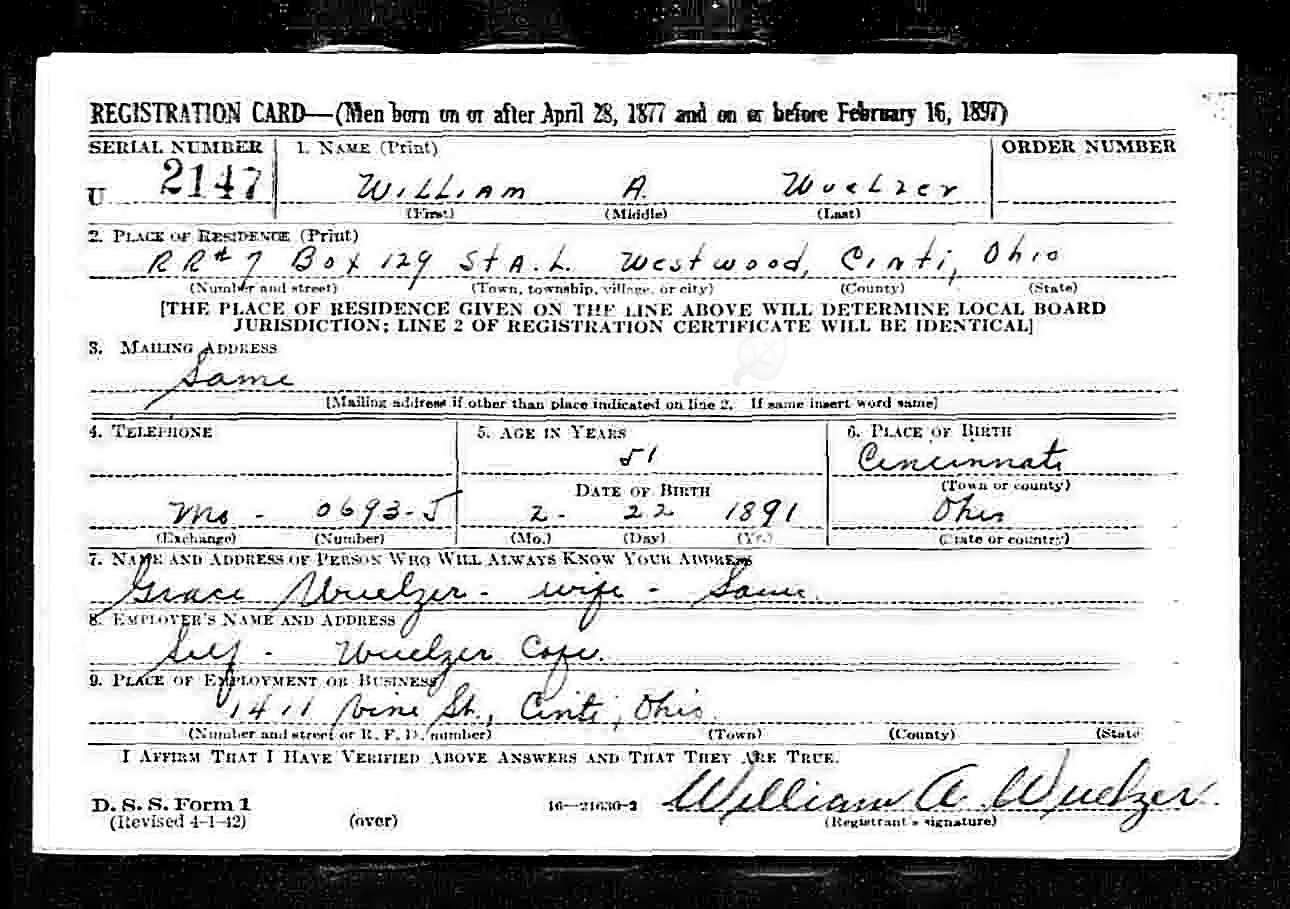 REGISTRATION CARD—(Men born on or after April 28, 1877 and on or before February 16, 1897)
SERIAL NUMBER 1. NAME (Print) ORDER NUMBER
U 2147 WILLIAM A. Wuelzer
(First) (Middle) (Last)
2. PLACE OF RESIDENCE (Print)
RR#7 Box 129 Sta. L. Westwood, Cinti, Ohio
(Number and street) (Town, township, village, or city) (County) (State)
[THE PLACE OF RESIDENCE GIVEN ON THE LINE ABOVE WILL DETERMINE LOCAL BOARD
JURISDICTION; LINE 2 OF REGISTRATION CERTIFICATE WILL BE IDENTICAL]
3. MAILING ADDRESS
Same
[Mailing address if other than place indicated on line 2. If same insert word same]
4. TELEPHONE 5. AGE IN YEARS 6. PLACE OF BIRTH
51 Cincinnati
DATE OF BIRTH (Town or county)
Mo - 0693-J 2- 22 1891 Ohio
(Exchange) (Number) (Mo.) (Day) (Yr.) (State or country)
7. NAME AND ADDRESS OF PERSON WHO WILL ALWAYS KNOW YOUR ADDRESS
Grace Wuelzer - wife - Same.
8. EMPLOYER'S NAME AND ADDRESS
Self - Wuelzer Cafe.
9. PLACE OF EMPLOYMENT OR BUSINESS
1411 Vine St., Cinti, Ohio.
(Number and street or R. F. D. number) (Town) (County) (State
I AFFIRM THAT I HAVE VERIFIED ABOVE ANSWERS AND THAT THEY ARE TRUE.
D. S. S. Form 1 16—21630-2 William A Wuelzer.
(Revised 4-1-42) (over) (Registrant's signature)